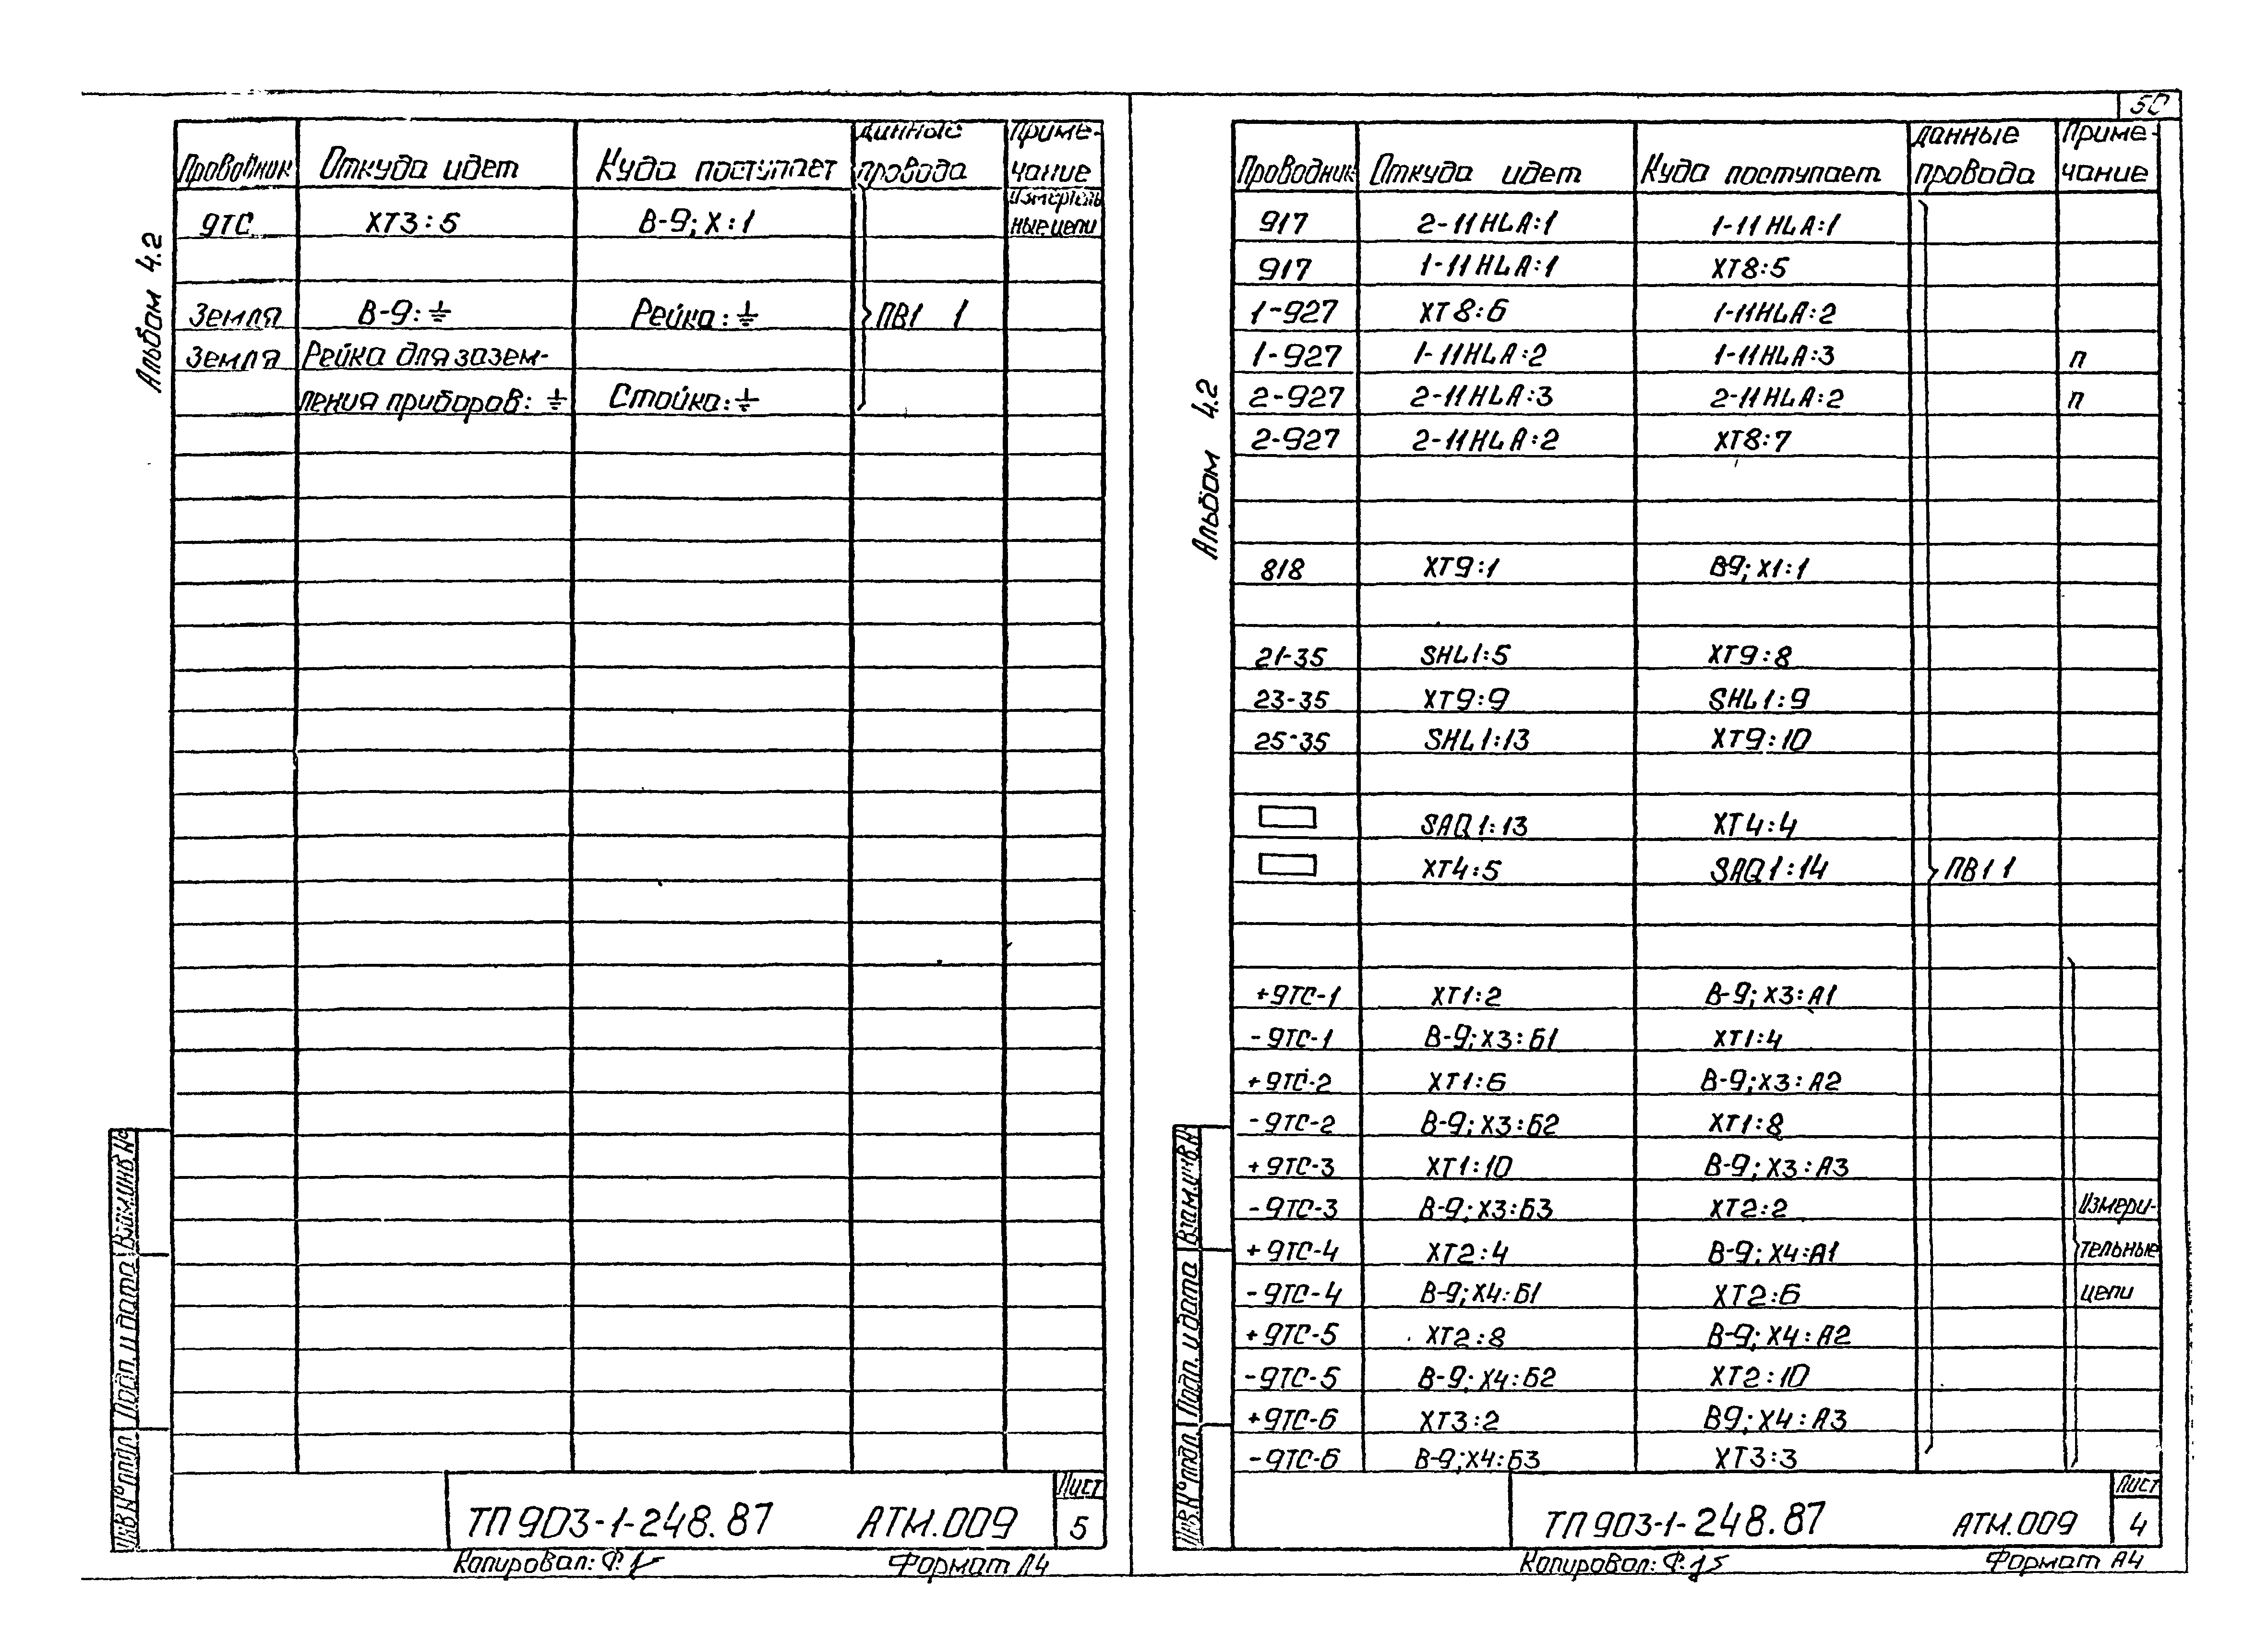 50
Альбом 4.2
Проводник Откуда идет Куда поступает Данные провода Приме-чание
9ТС ХТ3:5 В-9; Х:1 Измеритель ные цепи
Земля В-9:⏚ Рейка:⏚ ПВ1 1
Земля Рейка для зазем-
ления приборов:⏚ Стойка:⏚
Взам.инв.№
Подп. и дата
Инв.№ подл.
ТП 903-1-248.87 АТМ.009
Лист
5
Копировал:
Формат А4
Альбом 4.2
Проводник Откуда идет Куда поступает Данные провода Приме-чание
917 2-11HLA:1 1-11HLA:1
917 1-11HLA:1 ХТ8:5
1-927 ХТ8:6 1-11HLA:2
1-927 1-11HLA:2 1-11HLA:3 п
2-927 2-11HLA:3 2-11HLA:2 п
2-927 2-11HLA:2 ХТ8:7
818 ХТ9:1 В9; Х1:1
21-35 SHL1:5 ХТ9:8
23-35 ХТ9:9 SHL1:9
25-35 SHL1:13 ХТ9:10
SAQ1:13 ХТ4:4
ХТ4:5 SAQ1:14 ПВ1 1
+9ТС-1 ХТ1:2 В-9; Х3:А1
-9ТС-1 В-9; Х3:Б1 ХТ1:4
+9ТС-2 ХТ1:6 В-9; Х3:А2
-9ТС-2 В-9; Х3:Б2 ХТ1:8
+9ТС-3 ХТ1:10 В-9; Х3:А3
-9ТС-3 В-9; Х3:Б3 ХТ2:2 Измери-
+9ТС-4 ХТ2:4 В-9; Х4:А1 тельные
-9ТС-4 В-9; Х4:Б1 ХТ2:6 цепи
+9ТС-5 ХТ2:8 В-9; Х4:А2
-9ТС-5 В-9; Х4:Б2 ХТ2:10
+9ТС-6 ХТ3:2 В9; Х4:А3
-9ТС-6 В-9; Х4:Б3 ХТ3:3
Взам.инв.№
Подп. и дата
Инв.№ подл.
ТП 903-1-248.87 АТМ.009
Лист
4
Копировал:
Формат А4